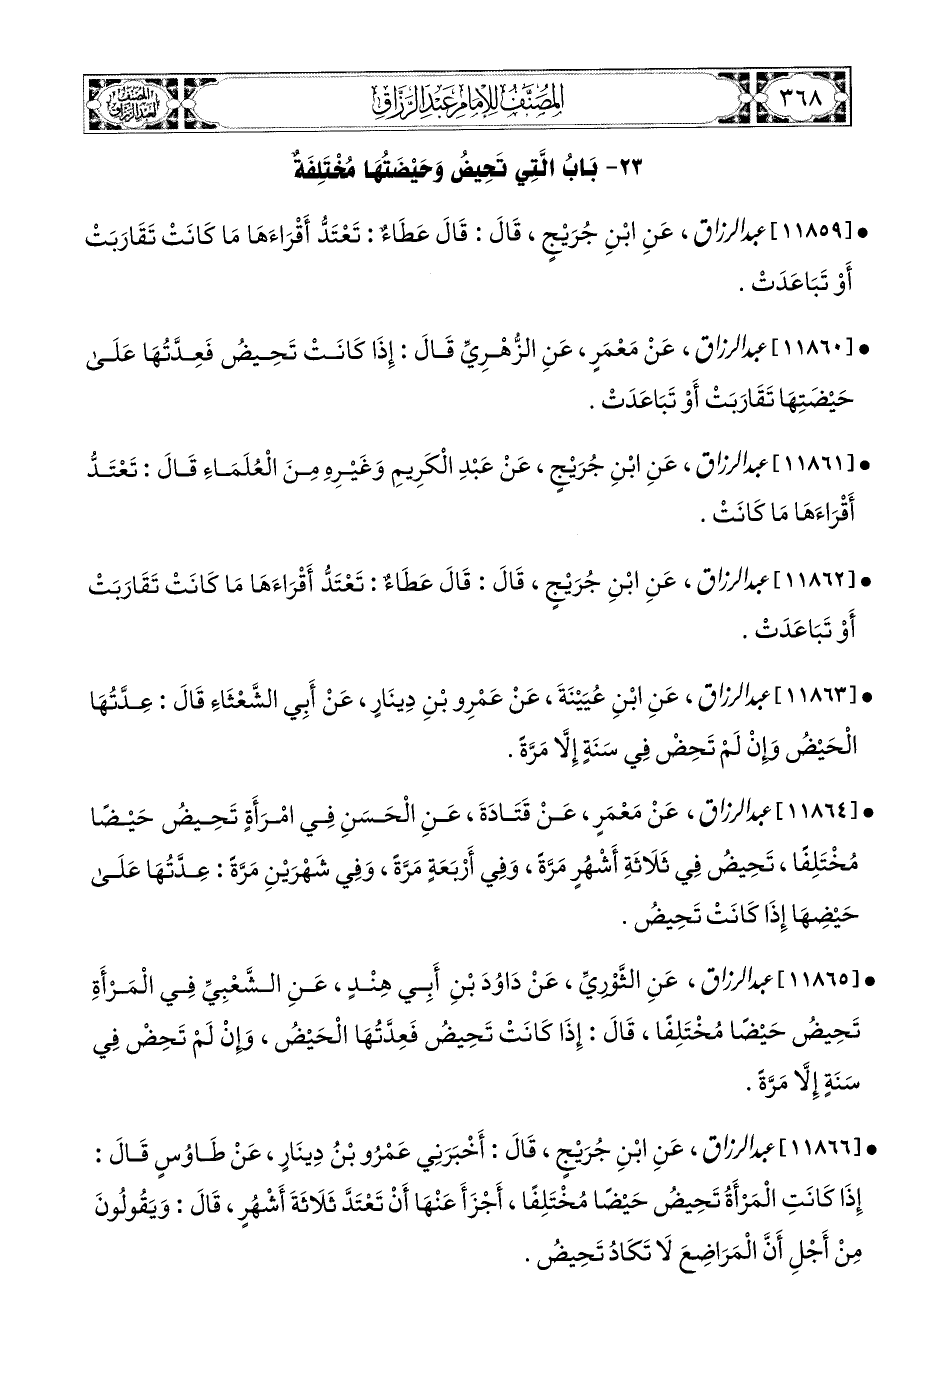 ٣٦٨
المصنف للإمام عبد الرزاق
المصنف
لعبد الرزاق
٢٣- بَابُ الَّتِي تَحِيضُ وَحَيْضَتُهَا مُخْتَلِفَةٌ
• [١١٨٥٩] عبد الرزاق، عَنِ ابْنِ جُرَيْجٍ، قَالَ: قَالَ عَطَاءٌ: تَعْتَدُّ أَقْرَاءَهَا مَا كَانَتْ تَقَارَبَتْ
أَوْ تَبَاعَدَتْ.
• [١١٨٦٠] عبد الرزاق، عَنْ مَعْمَرٍ، عَنِ الزُّهْرِيِّ قَالَ: إِذَا كَانَتْ تَحِيضُ فَعِدَّتُهَا عَلَىٰ
حَيْضَتِهَا تَقَارَبَتْ أَوْ تَبَاعَدَتْ.
• [١١٨٦١] عبد الرزاق، عَنِ ابْنِ جُرَيْجٍ، عَنْ عَبْدِ الْكَرِيمِ وَغَيْرِهِ مِنَ الْعُلَمَاءِ قَالَ: تَعْتَدُّ
أَقْرَاءَهَا مَا كَانَتْ.
• [١١٨٦٢] عبد الرزاق، عَنِ ابْنِ جُرَيْجٍ، قَالَ: قَالَ عَطَاءٌ: تَعْتَدُّ أَقْرَاءَهَا مَا كَانَتْ تَقَارَبَتْ
أَوْ تَبَاعَدَتْ.
• [١١٨٦٣] عبد الرزاق، عَنِ ابْنِ عُيَيْنَةَ، عَنْ عَمْرِو بْنِ دِينَارٍ، عَنْ أَبِي الشَّعْثَاءِ قَالَ: عِدَّتُهَا
الْحَيْضُ وَإِنْ لَمْ تَحِضْ فِي سَنَةٍ إِلَّا مَرَّةً.
• [١١٨٦٤] عبد الرزاق، عَنْ مَعْمَرٍ، عَنْ قَتَادَةَ، عَنِ الْحَسَنِ فِي امْرَأَةٍ تَحِيضُ حَيْضًا
مُخْتَلِفًا، تَحِيضُ فِي ثَلَاثَةِ أَشْهُرٍ مَرَّةً، وَفِي أَرْبَعَةٍ مَرَّةً، وَفِي شَهْرَيْنِ مَرَّةً: عِدَّتُهَا عَلَىٰ
حَيْضِهَا إِذَا كَانَتْ تَحِيضُ.
• [١١٨٦٥] عبد الرزاق، عَنِ الثَّوْرِيِّ، عَنْ دَاوُدَ بْنِ أَبِي هِنْدٍ، عَنِ الشَّعْبِيِّ فِي الْمَرْأَةِ
تَحِيضُ حَيْضًا مُخْتَلِفًا، قَالَ: إِذَا كَانَتْ تَحِيضُ فَعِدَّتُهَا الْحَيْضُ، وَإِنْ لَمْ تَحِضْ فِي
سَنَةٍ إِلَّا مَرَّةً.
• [١١٨٦٦] عبد الرزاق، عَنِ ابْنِ جُرَيْجٍ، قَالَ: أَخْبَرَنِي عَمْرُو بْنُ دِينَارٍ، عَنْ طَاوُسٍ قَالَ:
إِذَا كَانَتِ الْمَرْأَةُ تَحِيضُ حَيْضًا مُخْتَلِفًا، أَجْزَأَ عَنْهَا أَنْ تَعْتَدَّ ثَلَاثَةَ أَشْهُرٍ، قَالَ: وَيَقُولُونَ
مِنْ أَجْلِ أَنَّ الْمَرَاضِعَ لَا تَكَادُ تَحِيضُ.